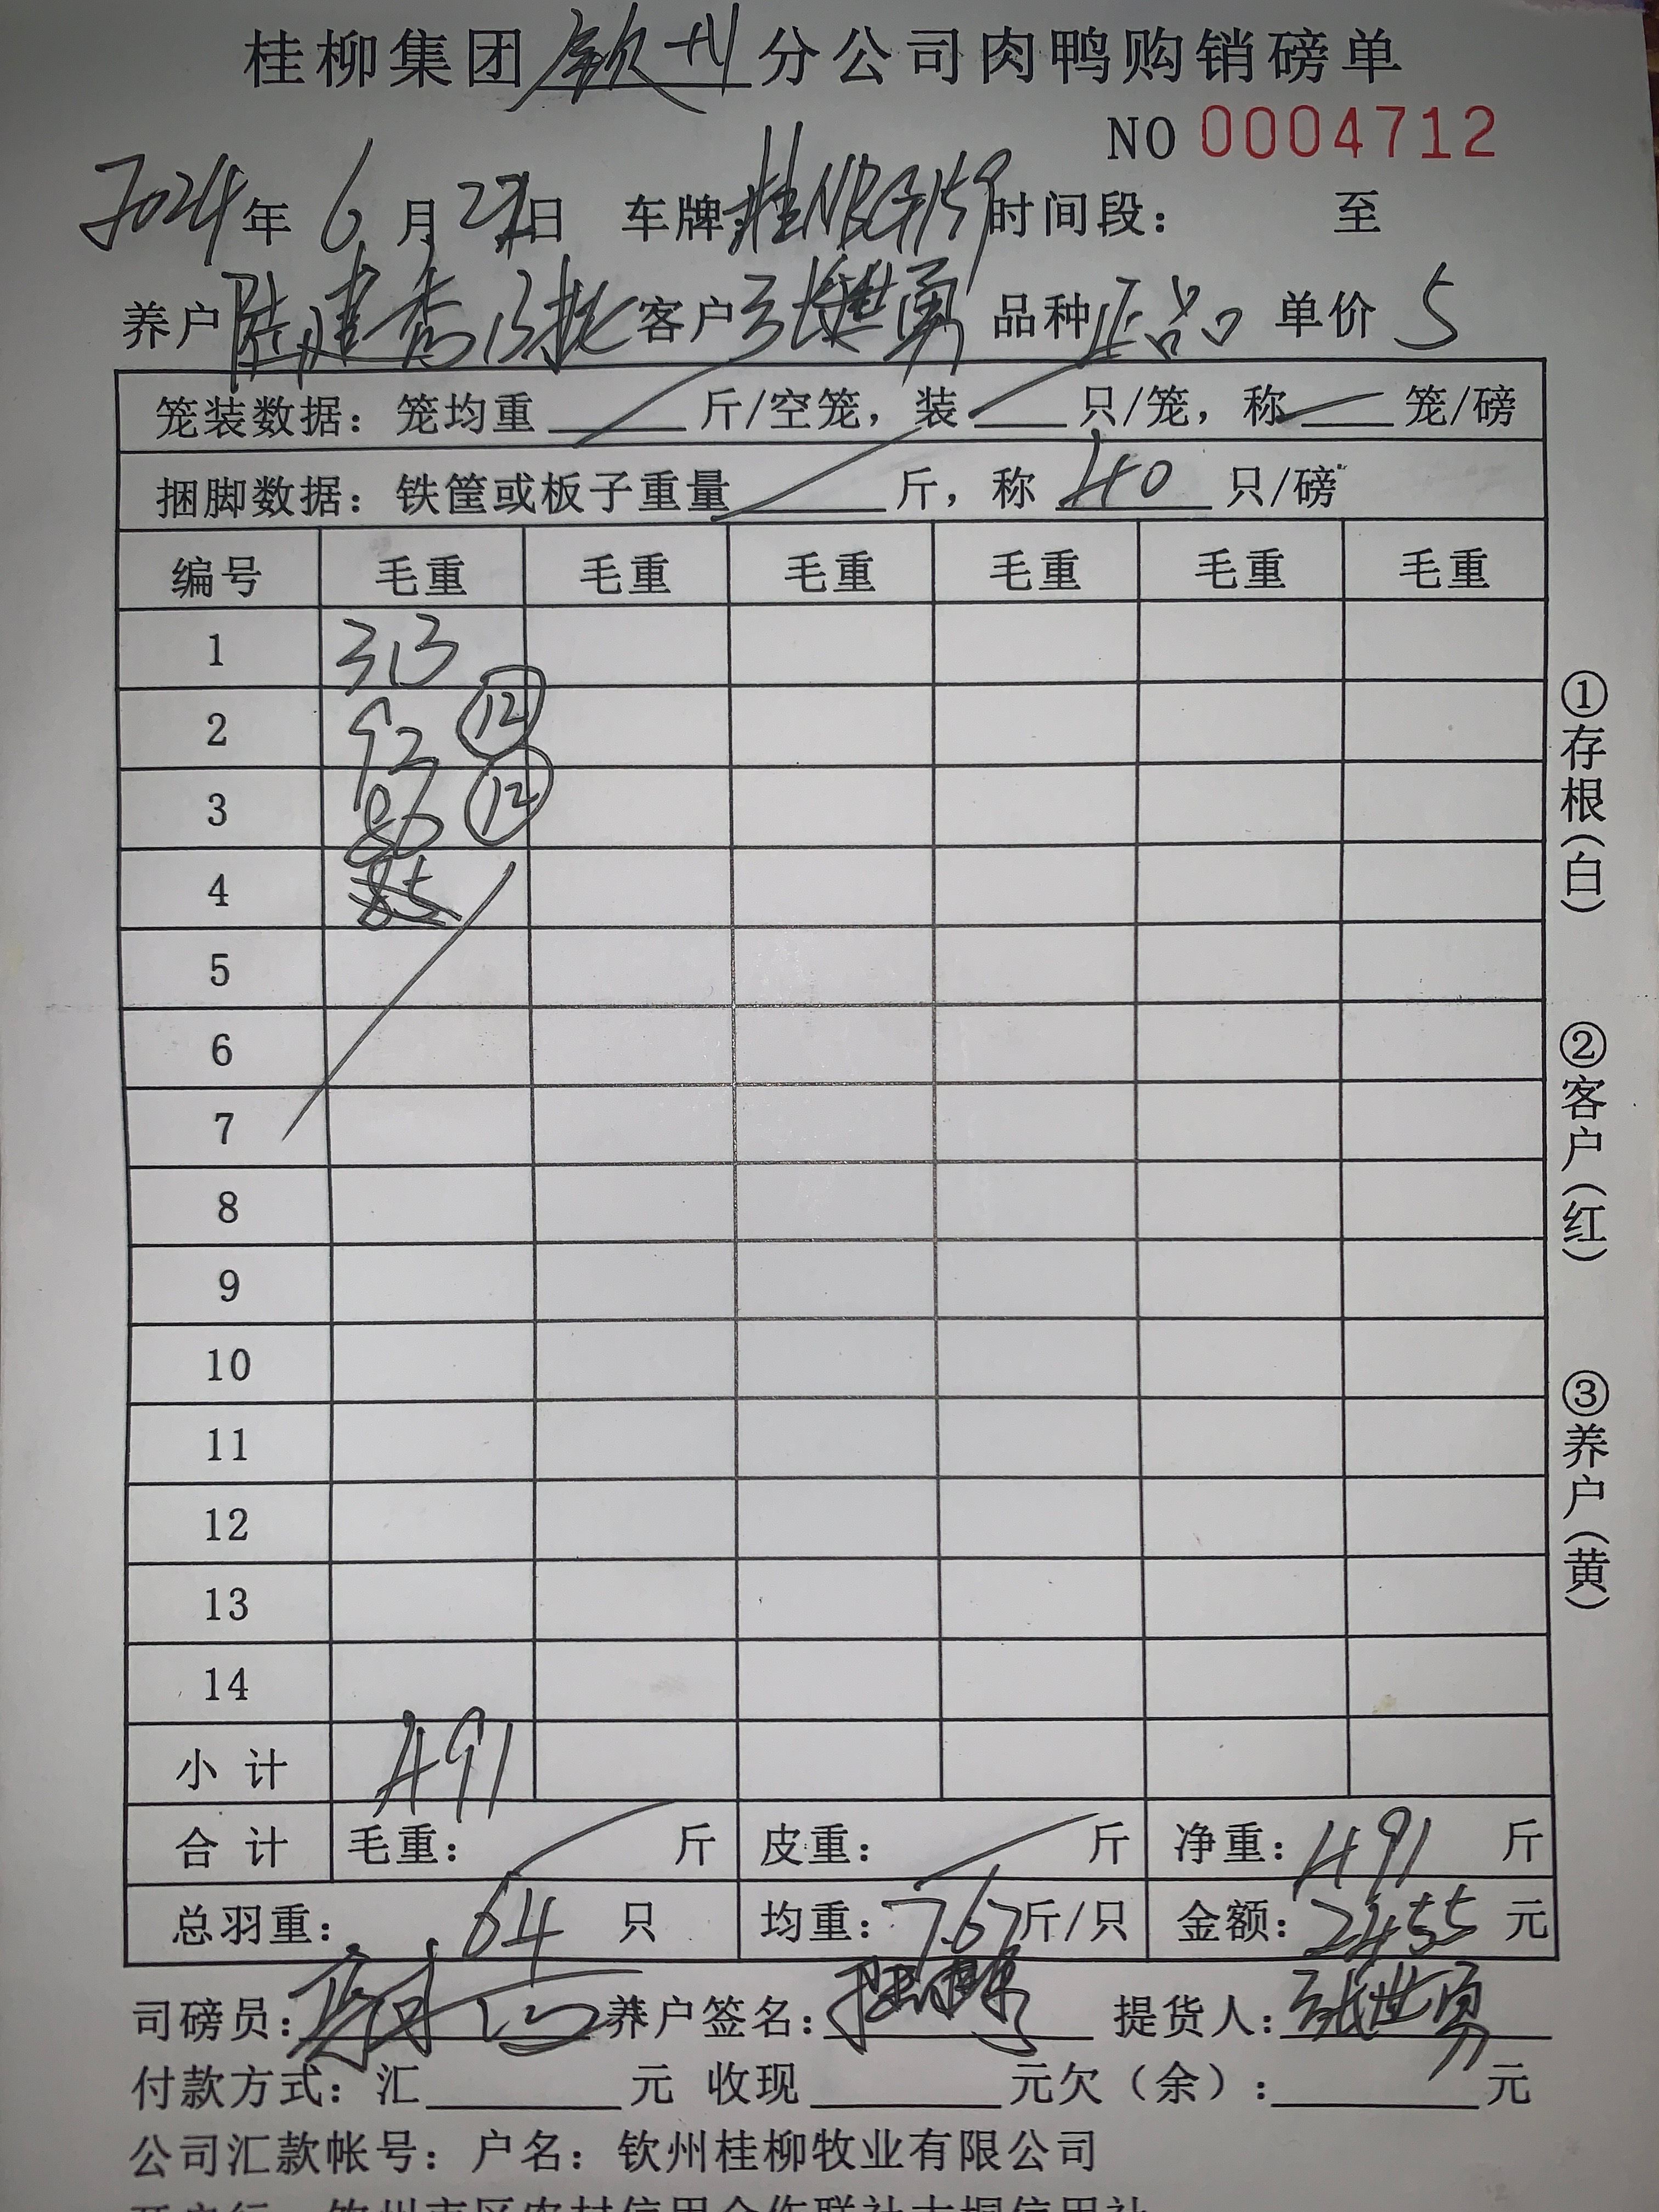 桂柳集团钦州分公司肉鸭购销磅单
NO 0004712
2024年6月27日 车牌桂NBG159时间段: 至
养户陆建秀13批客户张世勇 品种正品 单价5
笼装数据: 笼均重 斤/空笼, 装 只/笼, 称 笼/磅
捆脚数据: 铁筐或板子重量 斤, 称 40 只/磅
编号 毛重 毛重 毛重 毛重 毛重 毛重
1 313
2 92 ⑫
3 86 ⑫
4
5
6
7
8
9
10
11
12
13
14
小计 491
合计 毛重: 斤 皮重: 斤 净重: 491 斤
总羽重: 64 只 均重: 7.67斤/只 金额: 2455 元
司磅员: 养户签名: 提货人: 张世勇
付款方式: 汇 元 收现 元欠（余）: 元
公司汇款帐号: 户名: 钦州桂柳牧业有限公司
①存根（白）
②客户（红）
③养户（黄）